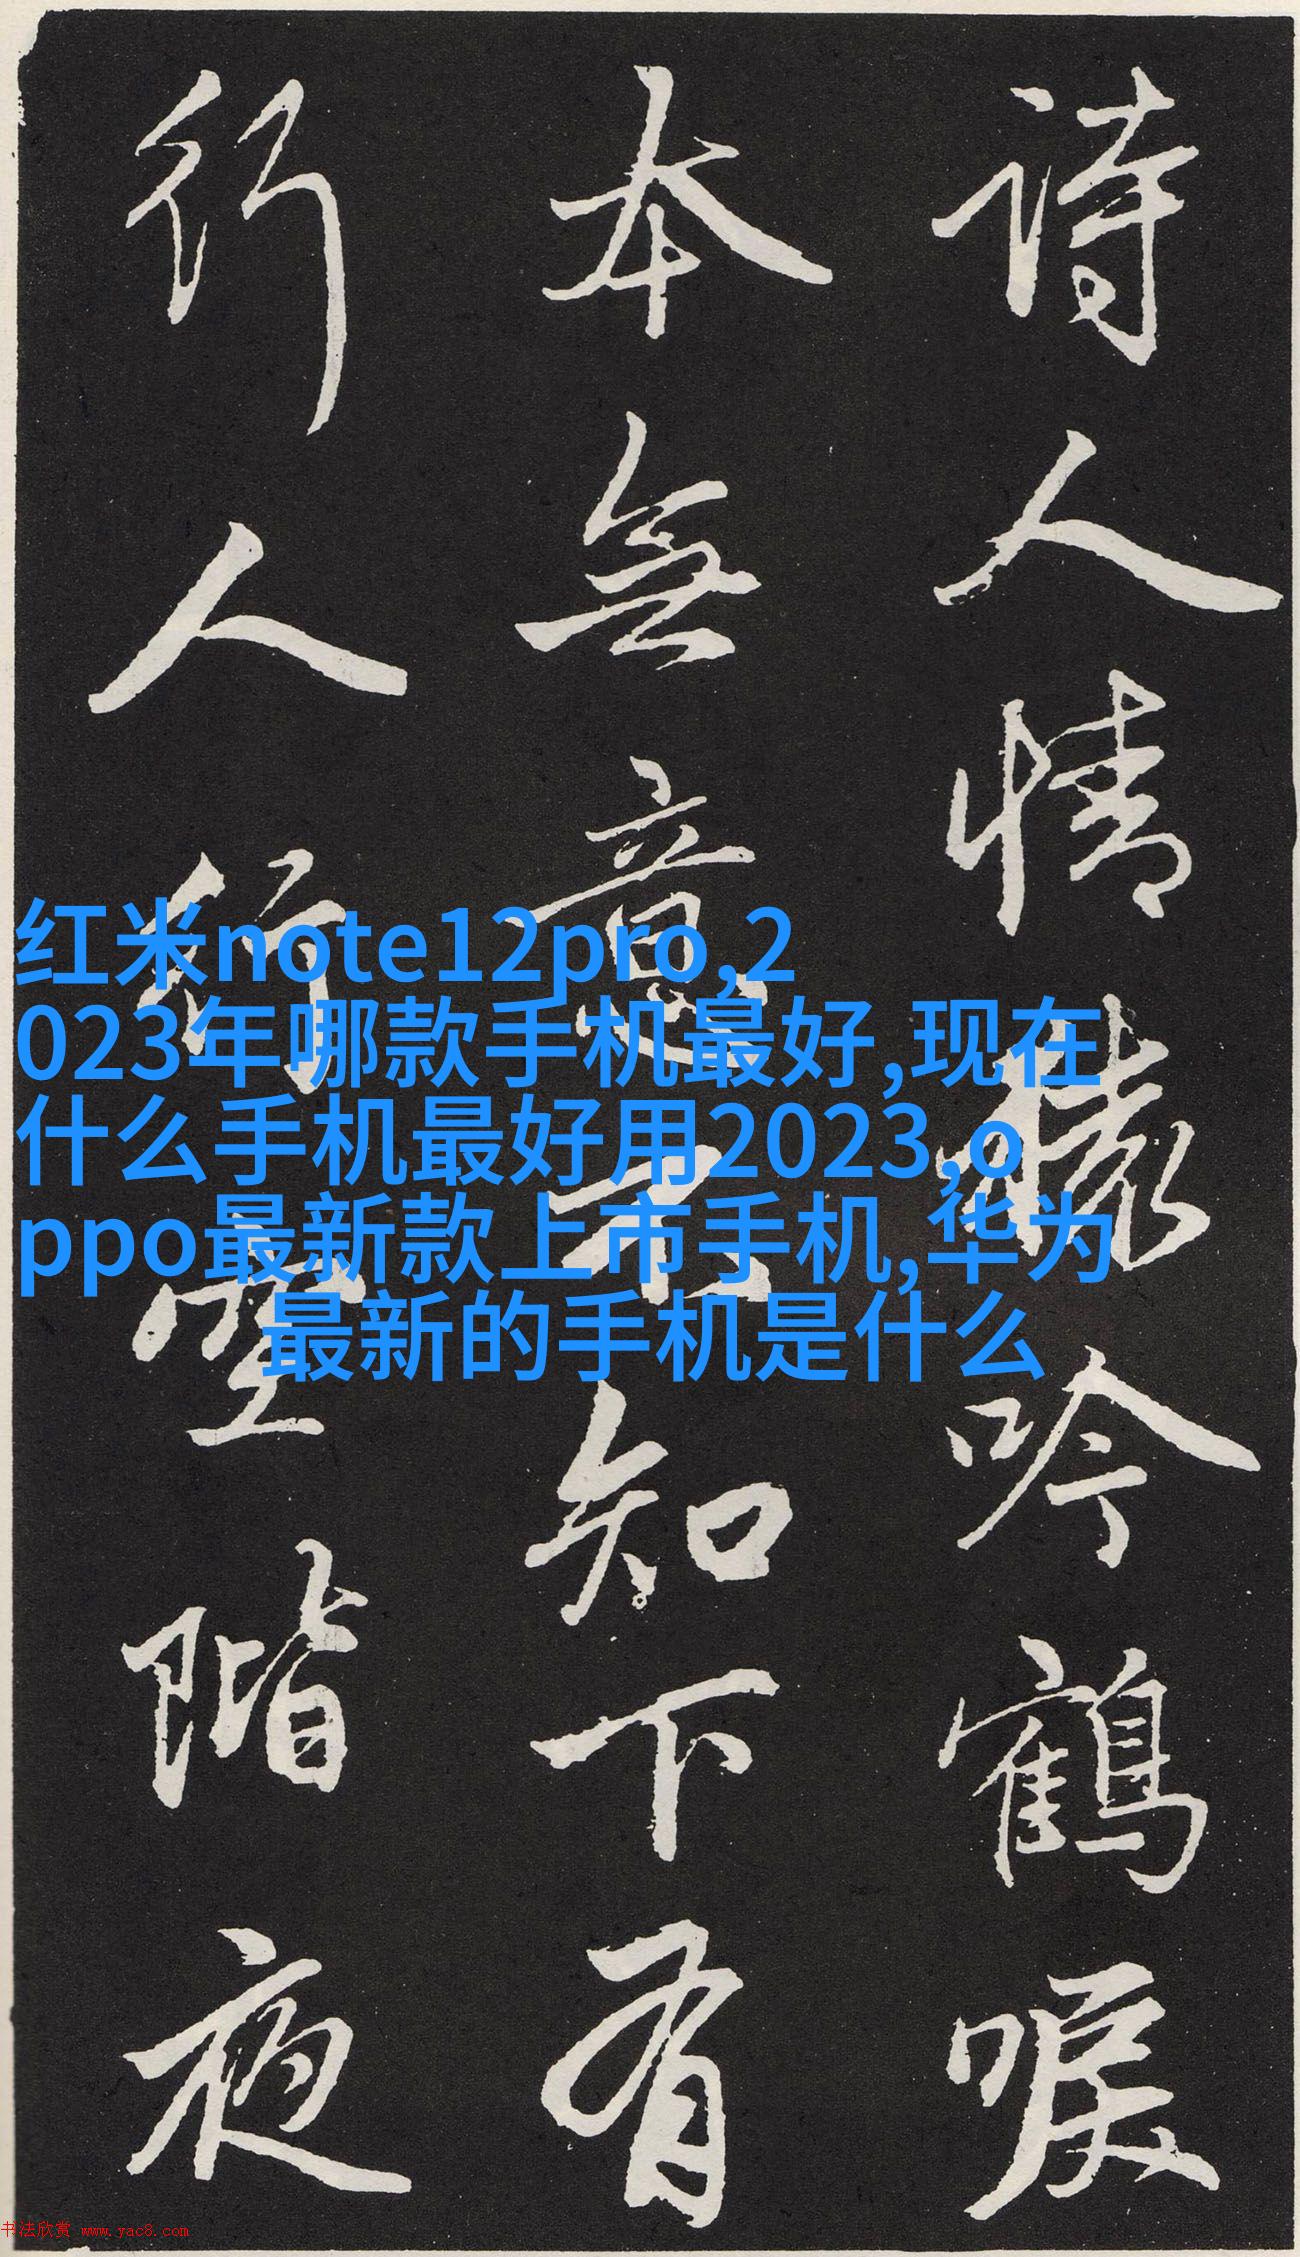 诗人情猿吟鹤唳
本無意不知下有
行人行空階夜
红米note12pro,2
023年哪款手机最好,现在
什么手机最好用2023,o
ppo最新款上市手机,华为
最新的手机是什么
书法欣赏 www.yac8.com